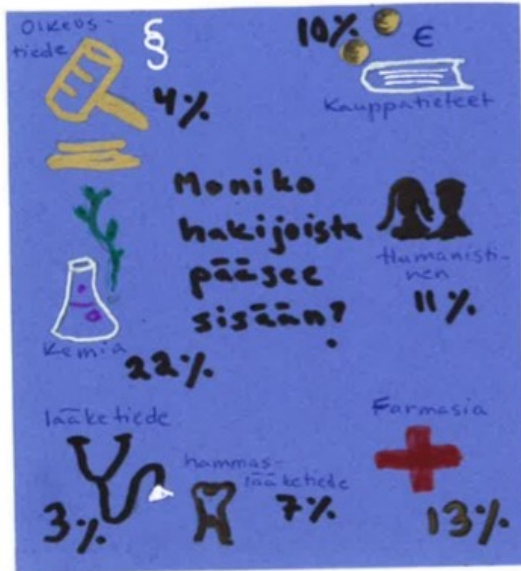 Oikeus-
tiede
§
4%
10%
€
Kauppatieteet
Moniko
hakijoista
pääsee
sisään?
Humanisti-
nen
11%
Kemia
22%
lääketiede
3%
hammas-
lääketiede
7%
Farmasia
13%